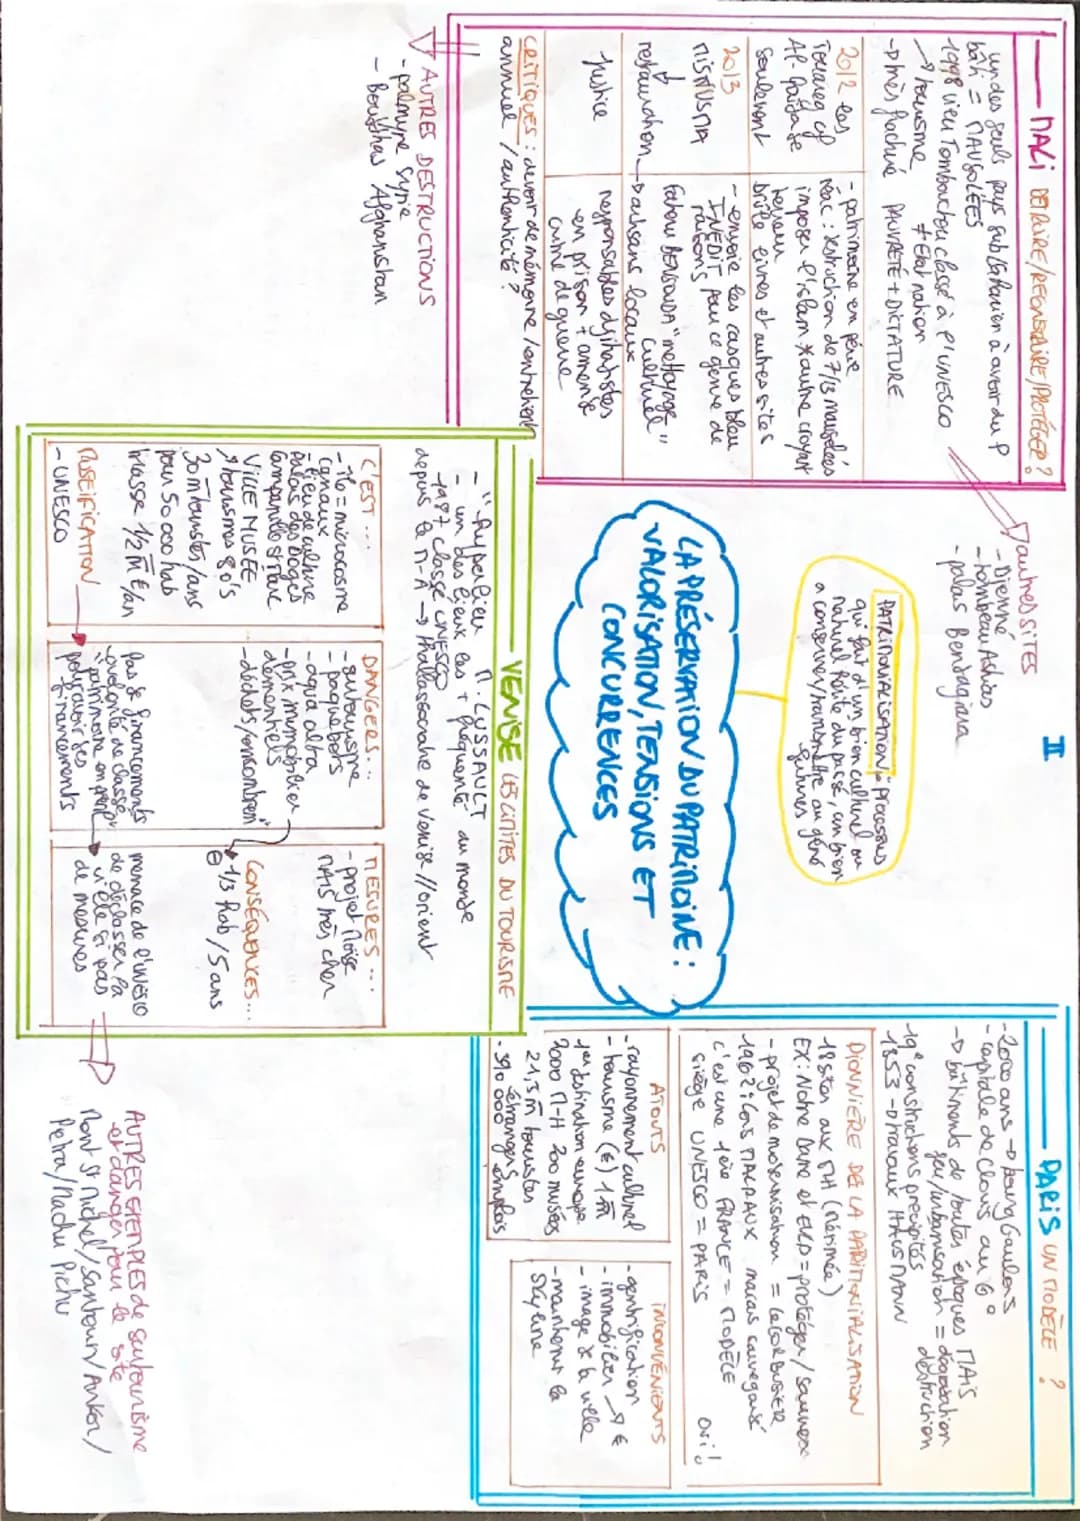 II
LA PRÉSERVATION DU PATRIMOINE :
VALORISATION, TENSIONS ET
CONCURRENCES
PATRIMONIALISATION "processus
qui fait d'un bien culturel ou
naturel hérité du passé, un bien
a conserver/transmettre au géné
futures
MALI DÉTRUIRE/RECONSTRUIRE/PROTÉGER ?
un des seuls pays sub saharien à avoir du P
bâti = MAUSOLÉES
1998 vieu Tombouctou classé à l'UNESCO
→ tourisme ≠ Etat nation
→ très fracturé PAUVRETÉ + DICTATURE
2012 les
Touareg et
Al-Qaïda se
soulèvent
- patrimoine en péril
réac : destruction de 7/13 mausolées
imposer l'islam
brûle livres et autres sites
2013
MISNUSMA
restauration
- envoie les casques bleu
INEDIT pour ce genre de
raisons
Fatou BENSOUDA "nettoyage
culturel"
→ artisans locaux
justice
responsables djihadistes
en prison + amende
crime de guerre
CRITIQUES : devoir de mémoire / entretient
annuel / authenticité ?
AUTRES DESTRUCTIONS
- palmyre Syrie
- Bouddhas Afghanistan
autres SITES
- Djenné
- tombeau Askias
- palais Bandagiara
VENISE LES LIMITES DU TOURISME
- "hyper lieu" M. LUSSAULT
- un des lieux les + fréquenté du monde
- 1987 classé UNESCO
depuis le M-A → thallassocratie de Venise // orient
C'EST ...
- île = microcosme
canaux
- lieu de culture
palais des Doges
Campanile St Marc
VILLE MUSÉE
↗ tourismes 80's
30 m touristes/ans
pour 50 000 hab
Masse 1/2 M €/an
DANGERS ...
- surtourisme
- paquebots
- aqua alta
- prix immobilier
démentiels
- déchets/encombrem
MESURES ...
- projet Moïse
MAIS très cher
CONSÉQUENCES ...
⊖ 1/3 hab / 5 ans
MUSEIFICATION
- UNESCO
Pas de financements
- ovligenté de classer
patrimoine en péril
pour avoir des
financements
menace de l'UNESCO
de déclasser la
ville si pas
de mesures
AUTRES EXEMPLES de surtourisme
et danger pour le site
Mont St Michel/Santorin/Ankor/
Petra/Machu Pichu
PARIS UN MODÈLE ?
- 2000 ans → bourg Gaulois
- capitale de Clovis au 6°
→ bâtiments de toutes époques MAIS
feu/urbanisation = dégradation
destruction
19° constructions précipités
1853 → travaux HAUSMANN
PIONNIÈRE DE LA PARTIMIALISATION
18 sites aux MH (Mérimée)
EX : Notre Dame et VLD = protéger/sauver
- projet de modernisation = Le CORBUSIER
1962 : Lois MALRAUX marais sauvegardé
c'est une 1ère FRANCE = MODÈLE
siège UNESCO = PARIS
oui !
ATOUTS
- rayonnement culturel
- tourisme (€) 1 M
1ère destination europe
2000 M-H 200 musées
21,5 m touristes
étrangers
- 590 000 emplois
INCONVÉNIENTS
- gentrification
- immobilier ↗ €
- image de la ville
- maintenir la
skyline